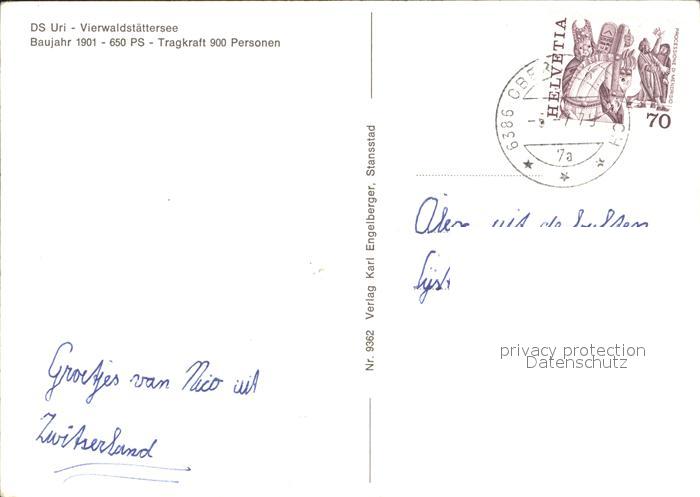 DS Uri - Vierwaldstättersee
Baujahr 1901 - 650 PS - Tragkraft 900 Personen
Groetjes van Nico uit
Zwitserland
Nr. 9362 Verlag Karl Engelberger, Stansstad
HELVETIA
PROCESSIONE DI MENDRISIO
70
6386
7a
privacy protection
Datenschutz